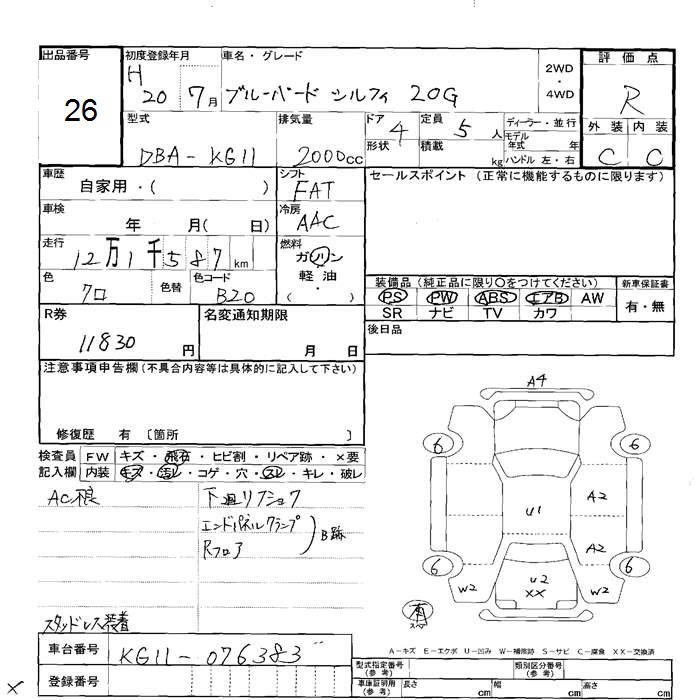 出品番号
26
初度登録年月
H
20 7月
車名・グレード
ブルーバード シルフィ 20G
2WD
・
4WD
評価点
R
外装 内装
C C
型式
DBA-KG11
排気量
2000cc
ドア
4
形状
定員
5人
積載
kg
ディーラー・並行
モデル
年式 年
ハンドル 左・右
車歴
自家用・( )
シフト
FAT
車検
年 月( 日)
冷房
AAC
走行
12万1千587km
燃料
ガソリン
軽油
・
( )
色
クロ
色替
色コード
B20
セールスポイント (正常に機能するものに限ります)
装備品(純正品に限り○をつけてください)
PS PW ABS エアB AW
SR ナビ TV カワ
新車保証書
有・無
後日品
R券
11830円
名変通知期限
月 日
注意事項申告欄(不具合内容等は具体的に記入して下さい)
修復歴 有 〔箇所 〕
検査員
記入欄
FW キズ・飛石・ヒビ割・リペア跡・×要
内装 キズ・汚レ・コゲ・穴・スレ・キレ・破レ
AC根
下廻リフショク
エンドパネルクランプ
Rフロア
B跡
スタッドレス装着
A4
6
6
A2
U1
A2
6
6
W2
U2
XX
W2
有
スペア
A-キズ E-エクボ U-凹み W-補修跡 S-サビ C-腐食 XX-交換済
車台番号
KG11-076383
登録番号
型式指定番号
(参考)
類別区分番号
(参考)
車庫証明用
(参考)
長さ cm
幅 cm
高さ cm
×